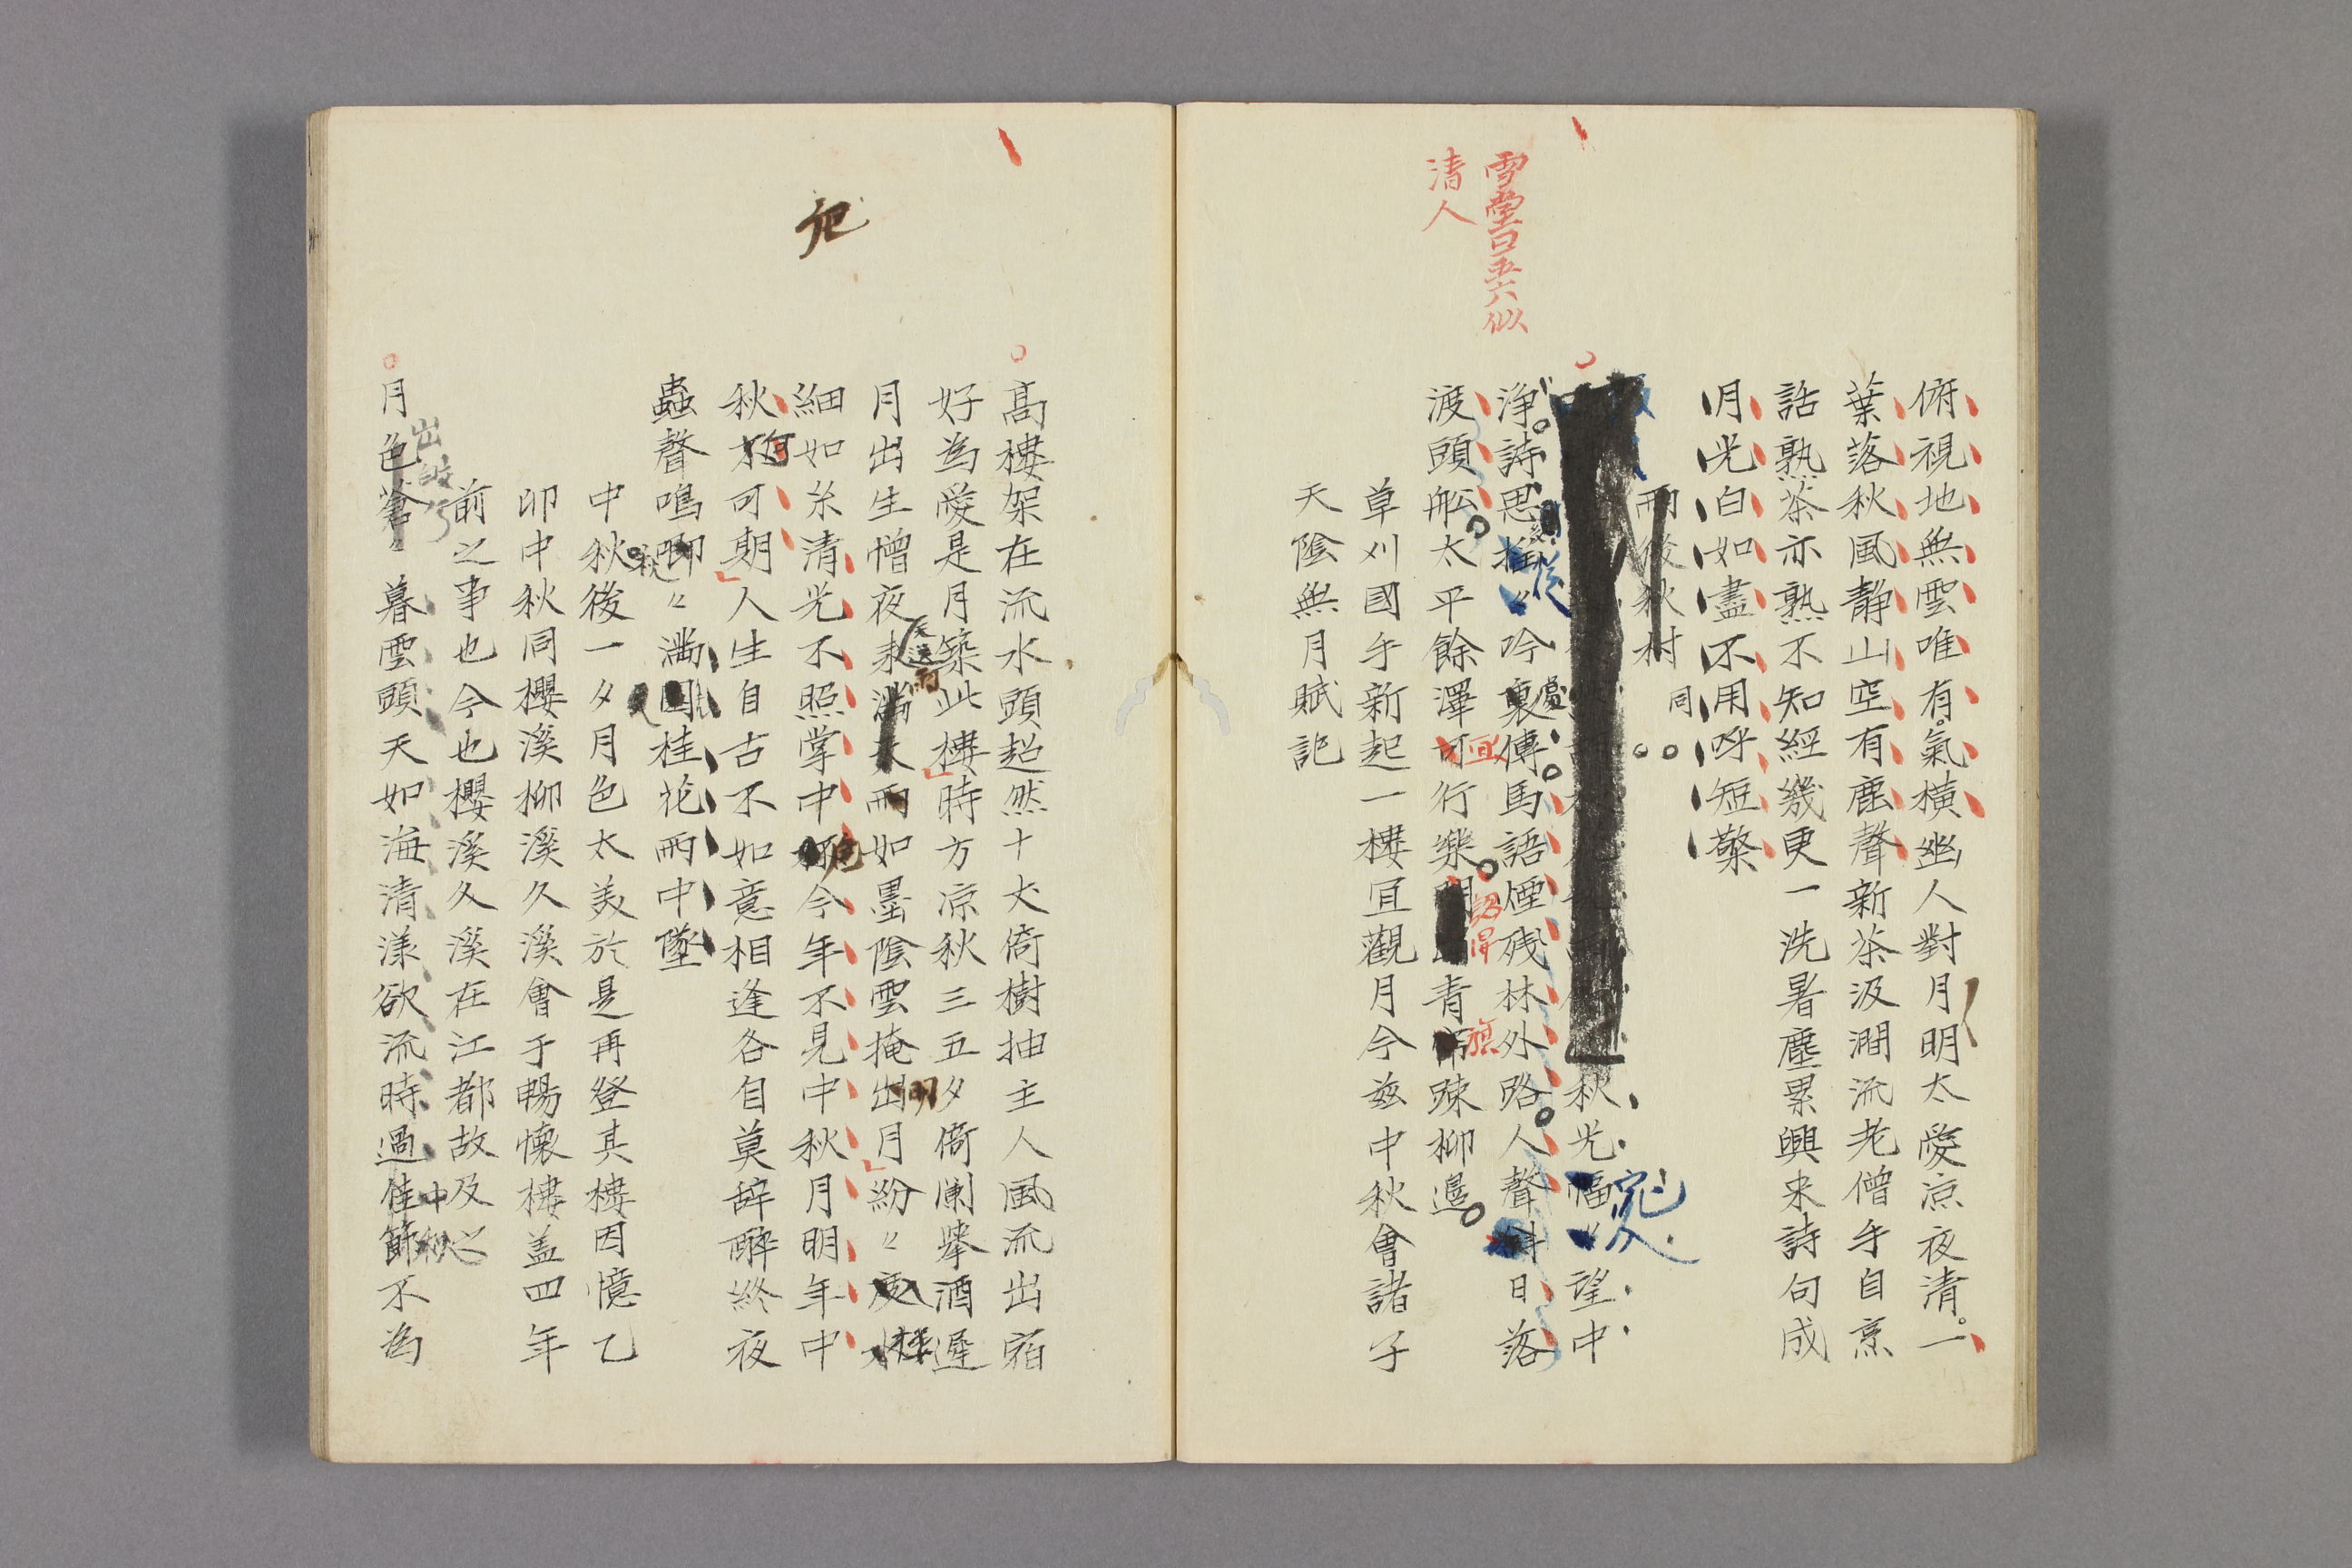 俯視地無雲唯有氣橫幽人對月明太愛凉夜清一
葉落秋風靜山空有鹿聲新茶汲澗流老僧手自烹
話熟茶亦熟不知經幾更一洗暑塵累興来詩句成
月光白如晝不用呼短檠
雨後秋村 同
秋光望中
淨詩思吟裏傳馬語煙殘林外路人聲斜日落
處
渡頭舩太平餘澤可行樂青帘踈柳邊
宜
旗
雪堂曰五六似
清人
草刈國手新起一樓宜觀月今茲中秋會諸子
天陰無月賦記
高樓架在流水頭超然十丈倚樹抽主人風流出宿
好為愛是月築此樓時方凉秋三五夕倚闌擧酒遲
月出生憎夜来滿天雨如墨陰雲掩出月紛々
明
細如糸清光不照掌中今年不見中秋月明年中
秋可期人生自古不如意相逢各自莫辞醉終夜
何
蟲聲鳴喞々滿園桂花雨中墜
秋
中秋後一夕月色太美於是再登其樓因憶乙
卯中秋同櫻溪柳溪久溪會于暢懷樓盖四年
前之事也今也櫻溪久溪在江都故及之
月色蒼々暮雲頭天如海清漾欲流時過佳節不為
出
中秋